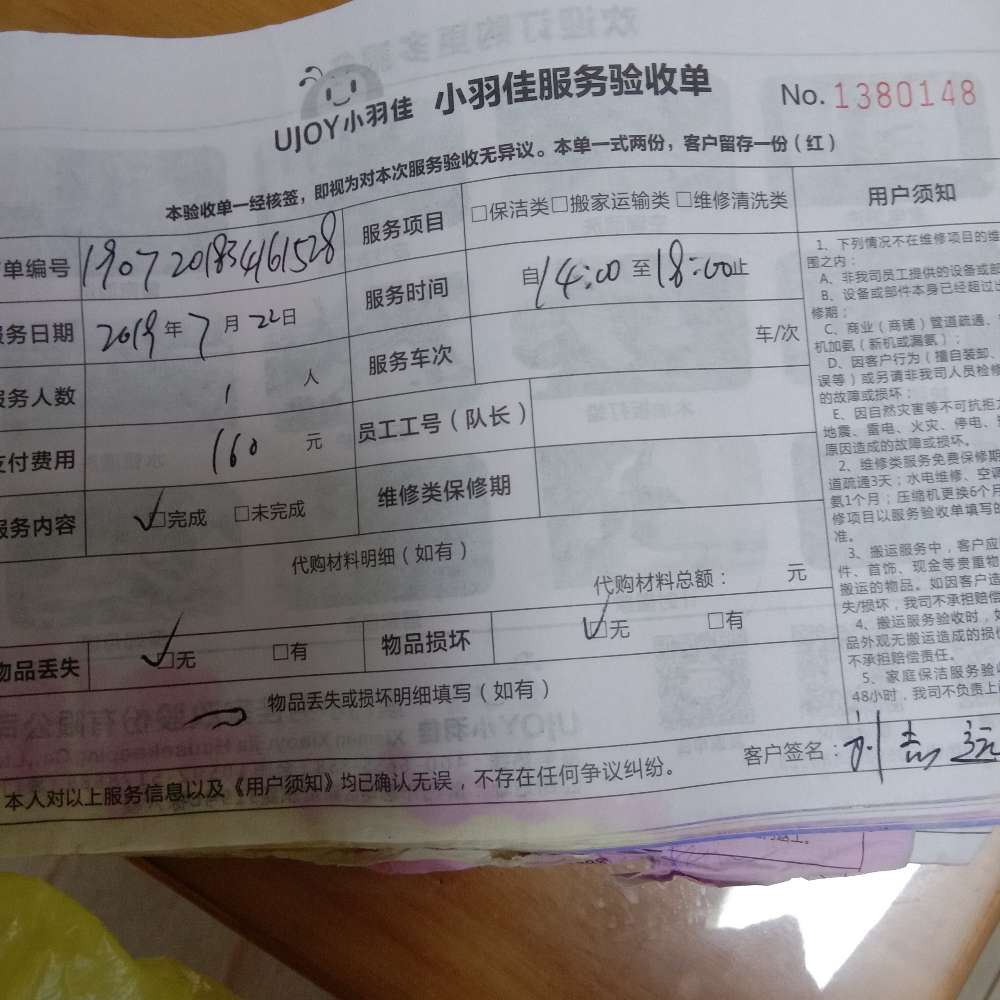 UJOY小羽佳 小羽佳服务验收单 No. 1380148
本验收单一经核签，即视为对本次服务验收无异议。本单一式两份，客户留存一份（红）
单编号 190720183461528 服务项目 □保洁类□搬家运输类 □维修清洗类
服务日期 2019年7月22日 服务时间 自14:00至18:00止
服务人数 1 人 服务车次 车/次
支付费用 160 元 员工工号（队长）
服务内容 □完成 □未完成 维修类保修期
代购材料明细（如有）
代购材料总额： 元
物品丢失 □无 □有 物品损坏 □无 □有
物品丢失或损坏明细填写（如有）
本人对以上服务信息以及《用户须知》均已确认无误，不存在任何争议纠纷。 客户签名：刘志远
用户须知
1、下列情况不在维修项目的维
围之内：
A、非我司员工提供的设备或部
B、设备或部件本身已经超过出
修期；
C、商业（商铺）管道疏通、
机加氨（新机或漏氨）；
D、因客户行为（擅自装卸、
误等）或另请非我司人员检修
的故障或损坏；
E、因自然灾害等不可抗拒
地震、雷电、火灾、停电、
原因造成的故障或损坏。
2、维修类服务免费保修期
道疏通3天；水电维修、空调
氨1个月；压缩机更换6个月
修项目以服务验收单填写的
准。
3、搬运服务中，客户应
件、首饰、现金等贵重物
搬运的物品。如因客户造
失/损坏，我司不承担赔偿
4、搬运服务验收时，如
品外观无搬运造成的损
不承担赔偿责任。
5、家庭保洁服务验收
48小时，我司不负责上